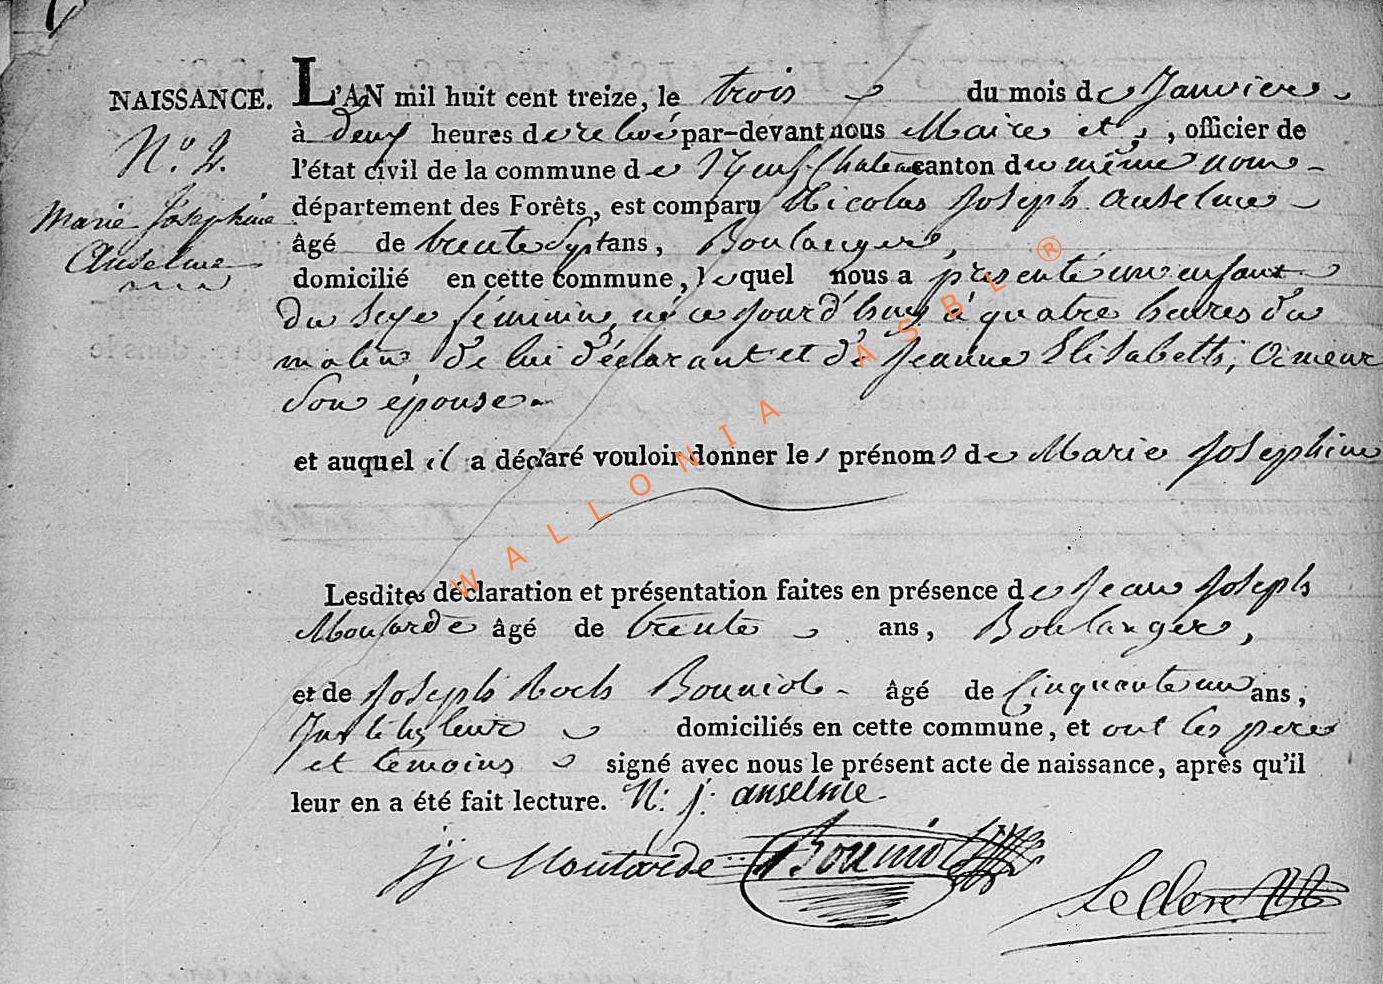 NAISSANCE.
N.º 2.
Marie Joséphine
Anselme
L'AN mil huit cent treize, le trois du mois de Janvier
à deux heures de relevé par-devant nous Maire et, officier de
l'état civil de la commune de Neuf-Chateau canton du même nom
département des Forêts, est comparu Nicolas Joseph Anselme
âgé de trente Sept ans, Boulanger,
domicilié en cette commune, lequel nous a présenté un enfant
du sexe féminin, né ce jourd'huy à quatre heures du
matin, de lui déclarant et de Jeanne Elisabeth,
Son épouse.
et auquel il a déclaré vouloir donner les prénoms de Marie Josephine
Lesdites déclaration et présentation faites en présence de Jean Joseph
Moutarde âgé de trente ans, Boulanger,
et de Joseph Roch Bouniol âgé de Cinquante un ans,
domiciliés en cette commune, et ont les pere
et temoins signé avec nous le présent acte de naissance, après qu'il
leur en a été fait lecture. N: j: anselme
jj Moutarde Bouniol
Leclere
WALLONIA ASBL ®